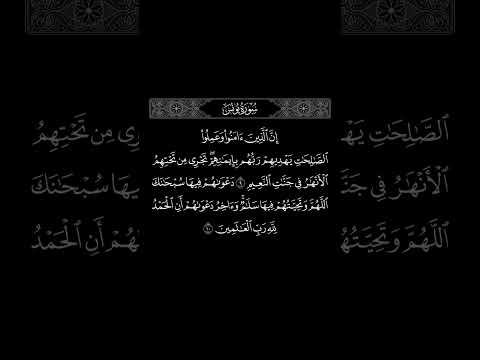 سُورَةُ يُونُسَ
إِنَّ ٱلَّذِينَ ءَامَنُوا۟ وَعَمِلُوا۟
ٱلصَّـٰلِحَـٰتِ يَهْدِيهِمْ رَبُّهُم بِإِيمَـٰنِهِمْ ۖ تَجْرِى مِن تَحْتِهِمُ
ٱلْأَنْهَـٰرُ فِى جَنَّـٰتِ ٱلنَّعِيمِ ٩ دَعْوَىٰهُمْ فِيهَا سُبْحَـٰنَكَ
ٱللَّهُمَّ وَتَحِيَّتُهُمْ فِيهَا سَلَـٰمٌ ۚ وَءَاخِرُ دَعْوَىٰهُمْ أَنِ ٱلْحَمْدُ
لِلَّهِ رَبِّ ٱلْعَـٰلَمِينَ ١٠